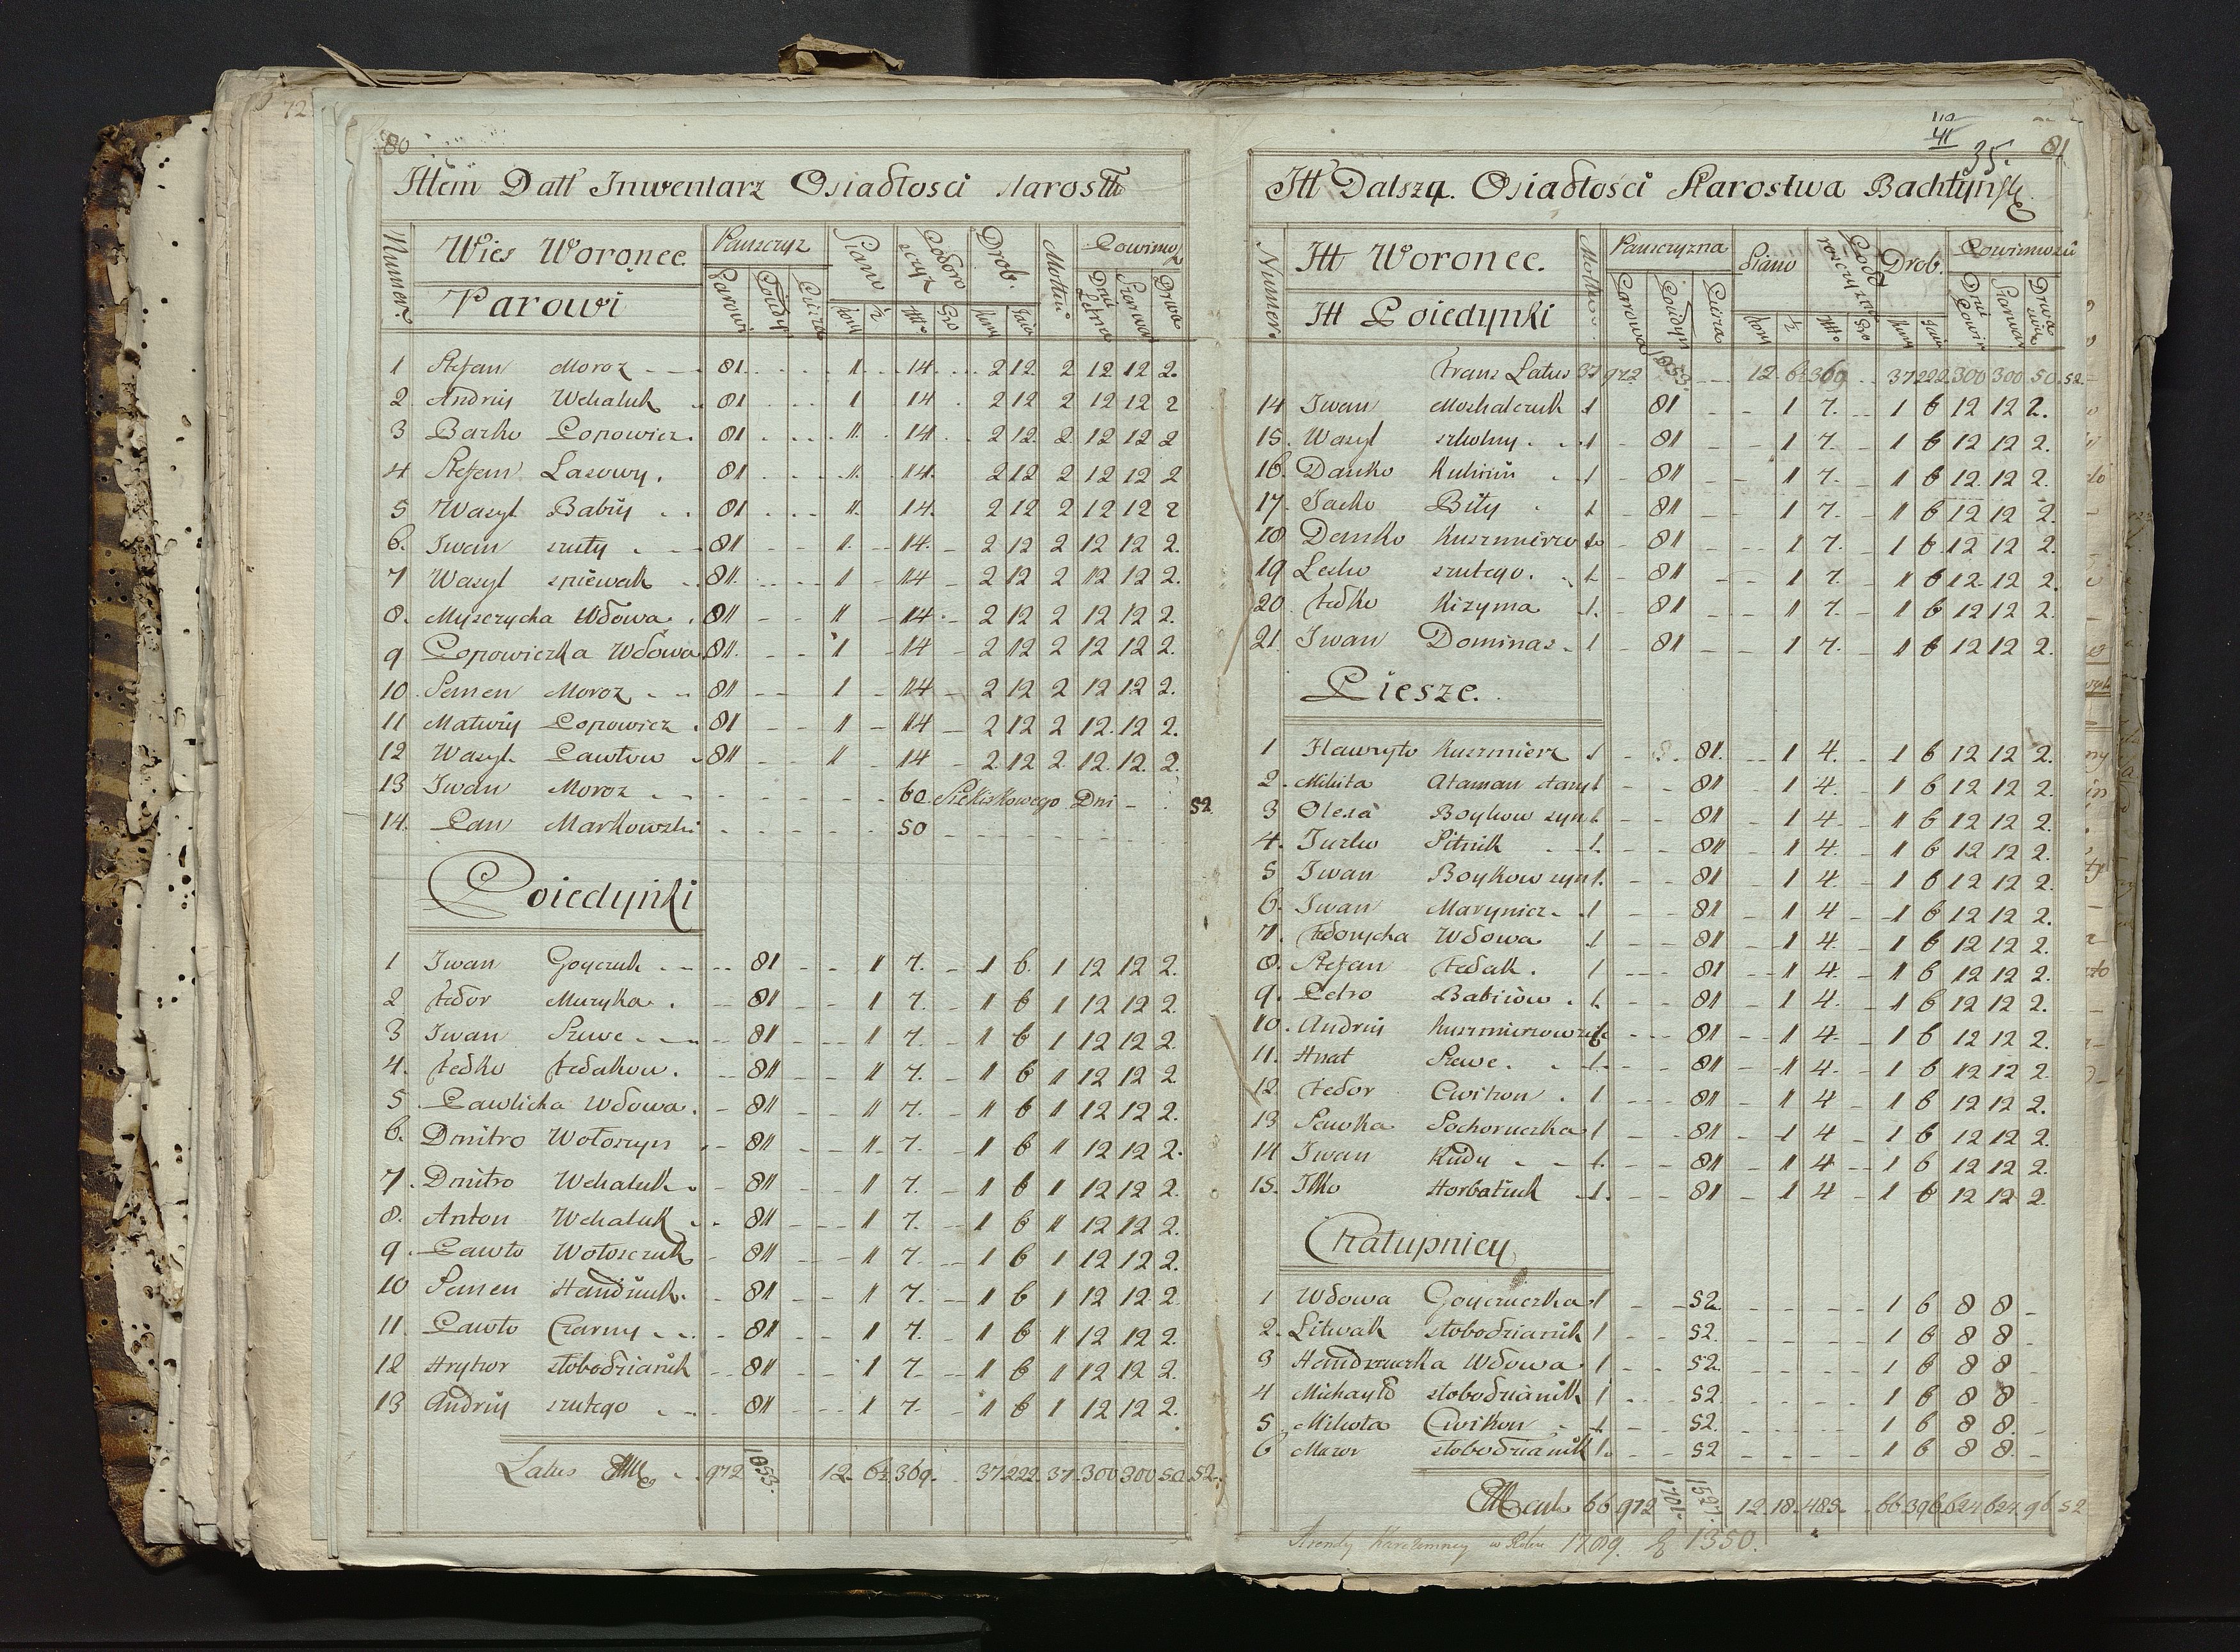 72
80
Ittem Datt Inwentarz Osiadłosci Starostt
Numer Wies Woronec. Panszczyz Siano Podoro szczyz Drob. Motki Powinno
Parowi Parowi Poiedy Piesza kopy ½ Dni Letnie Szarwar Drwa
1 Stefan Moroz 81 1 14 2 12 2 12 12 2.
2 Andrиy Wchaluk 81 1 14 2 12 2 12 12 2
3 Barko Popowicz. 81 1 14 2 12 2 12 12 2
4 Stefan Lasowy. 81 1 14 2 12 2 12 12 2
5 Wasyl Babiy 81 1 14 2 12 2 12 12 2
6. Iwan szuty 81 1 14 2 12 2 12 12 2.
7 Wasyl spiewak 81 1 14 2 12 2 12 12 2.
8. Myszczycha Wdowa 81 1 14 2 12 2 12 12 2.
9 Popowiczka Wdowa 81 1 14 2 12 2 12 12 2.
10 Semen Moroz 81 1 14 2 12 2 12 12 2.
11 Matwiy Popowicz 81 1 14 2 12 2 12 12 2.
12 Wasyl Pawłow 81 1 14 2 12 2 12 12 2
13 Iwan Moroz 60 Dni 52
14. Pan Markowski 50
Poiedynki
1 Iwan Goyczuk 81 1 7. 1 6 1 12 12 2.
2 Fedor Muzyka 81 1 7. 1 6 1 12 12 2.
3 Iwan Szewc 81 1 7. 1 6 1 12 12 2.
4. Fedko Fedakow. 81 1 7. 1 6 1 12 12 2.
5 Pawlicha Wdowa. 81 1 7. 1 6 1 12 12 2.
6. Dmitro Wołoszyn 81 1 7. 1 6 1 12 12 2.
7. Dmitro Wchaluk 81 1 7. 1 6 1 12 12 2.
8. Anton Wchaluk 81 1 7. 1 6 1 12 12 2.
9. Pawło Wołoszczuk 81 1 7. 1 6 1 12 12 2.
10 Semen Handziuk. 81 1 7. 1 6 1 12 12 2.
11. Pawło Czarny 81 1 7. 1 6 1 12 12 2.
12 Hryhor słobodzianik 81 1 7. 1 6 1 12 12 2.
13 Andrиy szutego 81 1 7. 1 6 1 12 12 2.
Latus 972 1053. 12. 6½ 369. 37 222 37 300 300 50 52.
110
41
35.
81
Itt Dalszą. Osiadłości Starostwa Bachtyńsk
Numer Itt Woronec. Motki Panszczyzna Siano Drob. Powinnosci
Itt Poiedynki Parowa Poiedyn Piesza kopy ½ Szarwar Drwa
Trans Latus 37 972 1053. 12. 6½ 369 37 222 300 300 50. 52
14 Iwan Moskalczuk 1 81 1 7. 1 6 12 12 2.
15. Wasyl szkolny 1 81 1 7. 1 6 12 12 2.
16. Danko Kuliniń 1 81 1 7. 1 6 12 12 2.
17. Jacko Biły 1 81 1 7. 1 6 12 12 2.
18 Demko Kuszmierzo 81 1 7. 1 6 12 12 2.
19 Lesko szutego. 1 81 1 7. 1 6 12 12 2.
20 Fedko Kizyma 1. 81 1 7. 1 6 12 12 2.
21. Iwan Dominas 1 81 1 7. 1 6 12 12 2.
Piesze.
1 Hawryło Kuszmierz 1 81. 1 4. 1 6 12 12 2.
2. Mikita Ataman stary 1 81 1 4. 1 6 12 12 2.
3 Olexa Boykow syn 1. 81 1 4. 1 6 12 12 2.
4. Jurko Sitnik 1. 81 1 4. 1 6 12 12 2.
5 Iwan Boykow syn 1. 81 1 4. 1 6 12 12 2.
6. Iwan Marynicz 1 81 1 4 1 6 12 12 2.
7. Fedorycha Wdowa 1 81 1 4. 1 6 12 12 2.
8. Stefan Fedak. 1 81 1 4. 1 6 12 12 2.
9. Petro Babiiow 1. 81 1 4. 1 6 12 12 2.
10. Andrиy 81 1 4. 1 6 12 12 2.
11. Hnat Szewc. 1. 81 1 4. 1 6 12 12 2
12. Fedor Cwikow 1 81 1 4 1 6 12 12 2.
13 Sewka Pochoruczka 1 81 1 4 1 6 12 12 2
14 Iwan Kudy 1. 81 1 4 1 6 12 12 2.
15. Ilko Horbatiuk 1. 81 1 4 1 6 12 12 2.
Chałupnicy
1 Wdowa Goyczuczka 1 52. 1 6 8 8
2. Litwak słobodzianik 1 52. 1 6 8 8
3 Handzuczka Wdowa 1 52. 1 6 8 8
4 Michayło słobodzianik 1 52. 1 6 8 8
5 Mikoła Cwikow 1 52. 1 6 8 8.
6 Mazor słobodzianik 1. 52 1 6 8 8.
66 972 1701. 1527. 12. 18. 483. 66 396 624 624 96 52
Arendy Karczemney w Roku 1789. 1350.